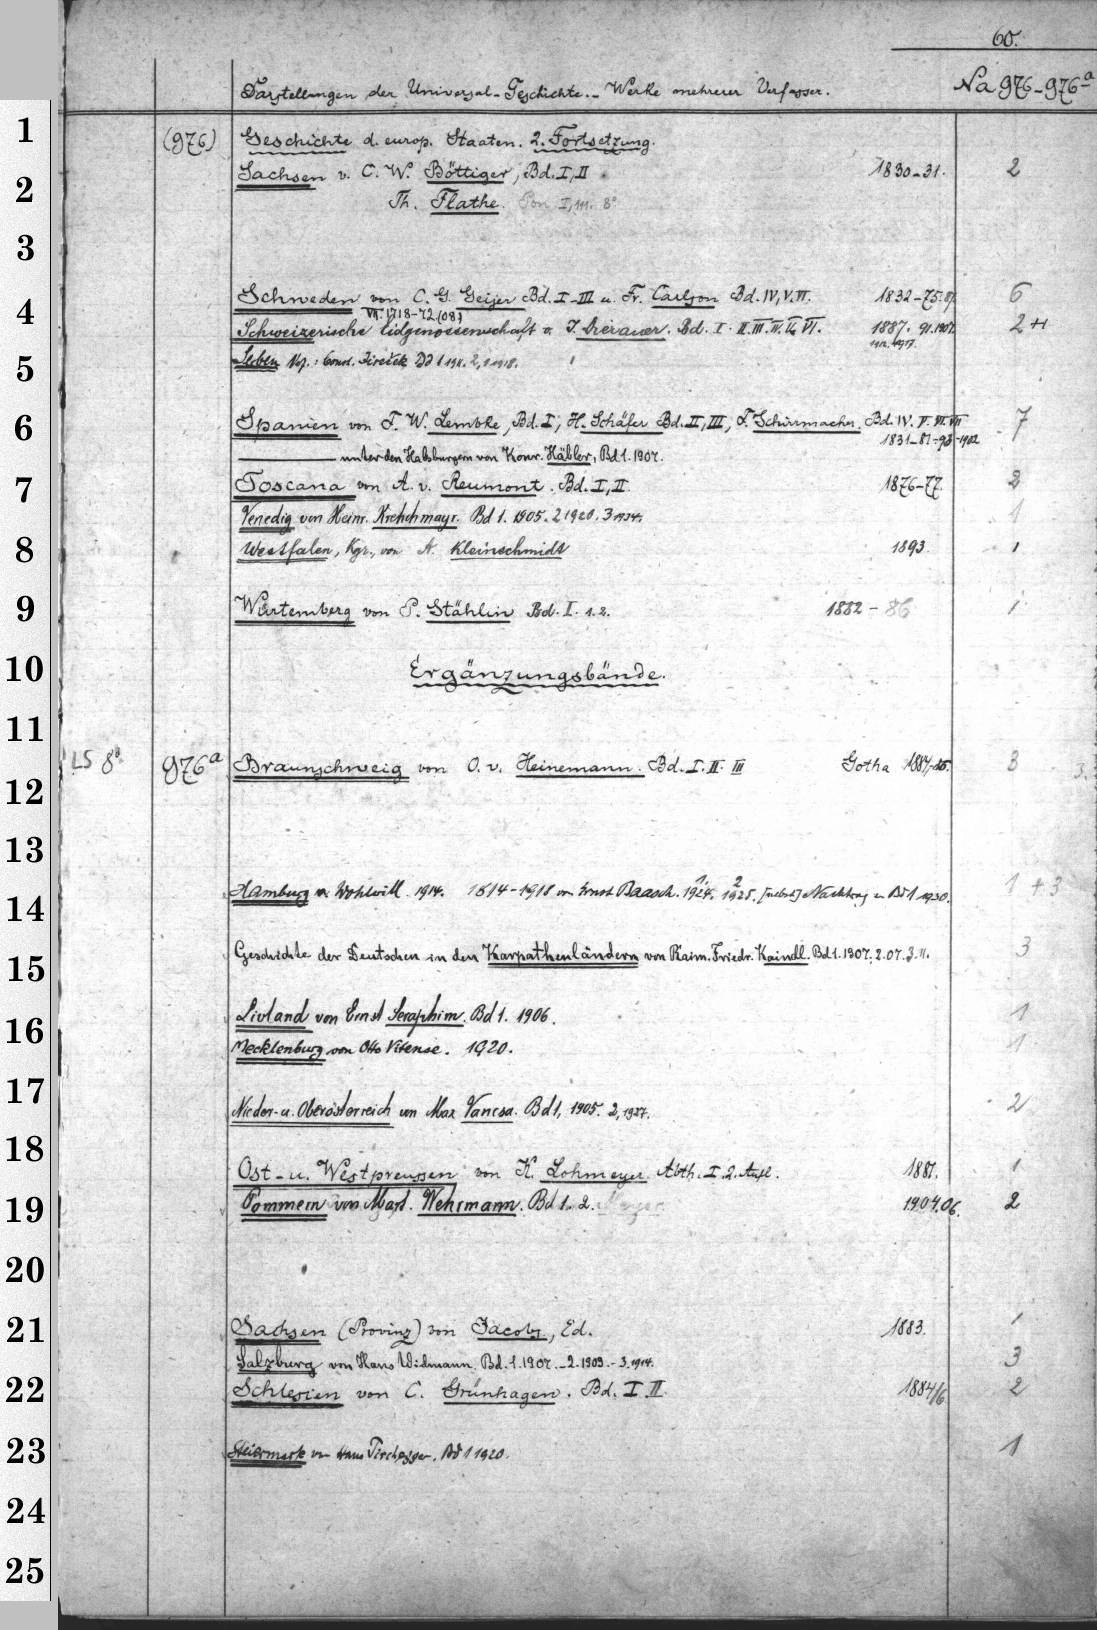 60.
Darstellungen der Universal-Geschichte. - Werke mehrerer Verfasser. Na 976-976a
1
(976) Geschichte d. europ. Staaten. 2. Fortsetzung.
Sachsen v. C. W. Böttiger, Bd. I, II 1830-31. 2
2
Th. Flathe.
3
Schweden von C. G. Geijer Bd. I-III u. Fr. Carlson Bd. IV, V. VI. 1832-75. 87. 6
4
VII. 1718-72 (08)
Schweizerische Eidgenossenschaft v. J. Dierauer. Bd. I. II. III. IV. V. VI. 1887. 91. 1907. 2+1
1912. 1917.
5
Serben v. Const. Jireček Bd 1 1911. 2,1 1918. 1
6
Spanien von F. W. Lembke, Bd. I, H. Schäfer Bd. II, III, F. Schirrmacher Bd. IV. V. VI. VII 7
1831-81-93-1902
unter den Habsburgern von Konr. Häbler, Bd 1. 1907.
7
Toscana von A. v. Reumont. Bd. I, II 1876-77. 2
Venedig von Heinr. Kretschmayr. Bd 1. 1905. 2 1920. 3 1934. 1
8
Westfalen, Kgr., von A. Kleinschmidt 1893. 1
9
Würtemberg von P. Stählin Bd. I. 1. 2. 1882 - 86 1
10
Ergänzungsbände.
11
LS 8° 976a Braunschweig von O. v. Heinemann. Bd. I. II. III Gotha 3
12
13
Hamburg v. Wohlwill. 1914. 1814-1918 von Ernst Baasch. 1. 1924. 2 1925. [nebst] Nachtrag zu Bd 1 1930. 1 + 3
14
Geschichte der Deutschen in den Karpathenländern von Raim. Friedr. Kaindl. Bd 1. 1907. 2. 07. 3. 11. 3
15
Livland von Ernst Seraphim. Bd 1. 1906. 1
16
Mecklenburg von Otto Vitense. 1920. 1
17
Nieder- u. Oberösterreich von Max Vancsa. Bd 1, 1905. 2, 1927. 2
18
Ost- u. Westpreussen von K. Lohmeyer. Abth. I. 2. Aufl. 1881. 1
19
Pommern von Mart. Wehrmann. Bd 1. 2. 1904. 06. 2
20
21
Sachsen (Provinz) von Jacobs, Ed. 1883. 1
Salzburg von Hans Widmann. Bd. 1. 1907. - 2. 1909. - 3. 1914. 3
22
Schlesien von C. Grünhagen. Bd. I. II. 1884/6 2
23
Steiermark von Hans Pirchegger. Bd 1 1920. 1
24
25